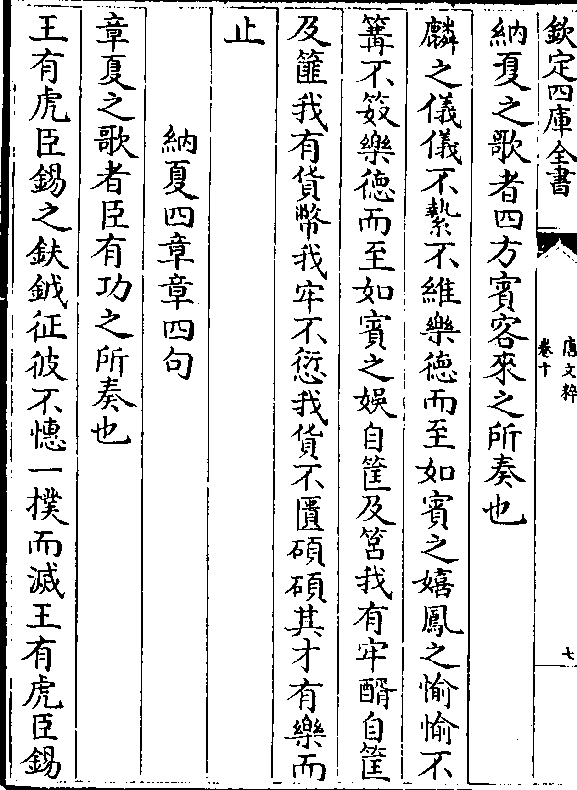 欽定四庫全書
唐文粹
卷十
七
納夏之歌者四方賓客來之所奏也
麟之儀儀不縶不維樂德而至如賓之嬉鳳之愉愉不
篝不笯樂德而至如賓之娛自筐及筥我有牢醑自筐
及篚我有貨幣我牢不愆我貨不匱碩碩其才有樂而
止
納夏四章章四句
章夏之歌者臣有功之所奏也
王有虎臣錫之鈇鉞征彼不憓一撲而滅王有虎臣錫